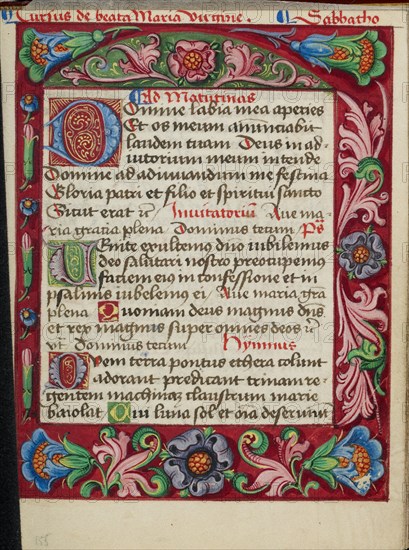 Cursus de beata Maria virgine. Sabbatho
Ad Matutinas
Domine labia mea aperies
Et os meum anunciabit
laudem tuam Deus in ad⸗
iutorium meum intende
Domine ad adiuuandum me festina
Gloria patri et filio et spiritui sancto
Sicut erat ĩc Inuitatorium Aue ma⸗
ria gratia plena Dominus tecum Ps
Uenite exultemus dn̄o iubilemus
deo salutari nostro preocupemꝰ
faciem eiꝰ in confessione et in
psalmis iubelemꝰ ei Aue maria gr̃a
plena Quoniam deus magnus dn̄s
et rex magnus super omnes deos ĩc
Dominus tecum Hymnus
Quem terra pontus ethera colunt
adorant predicant trinam re⸗
gentem machinaʒ claustrum marie
baiolat Cui luna sol et oīa deseruiunt